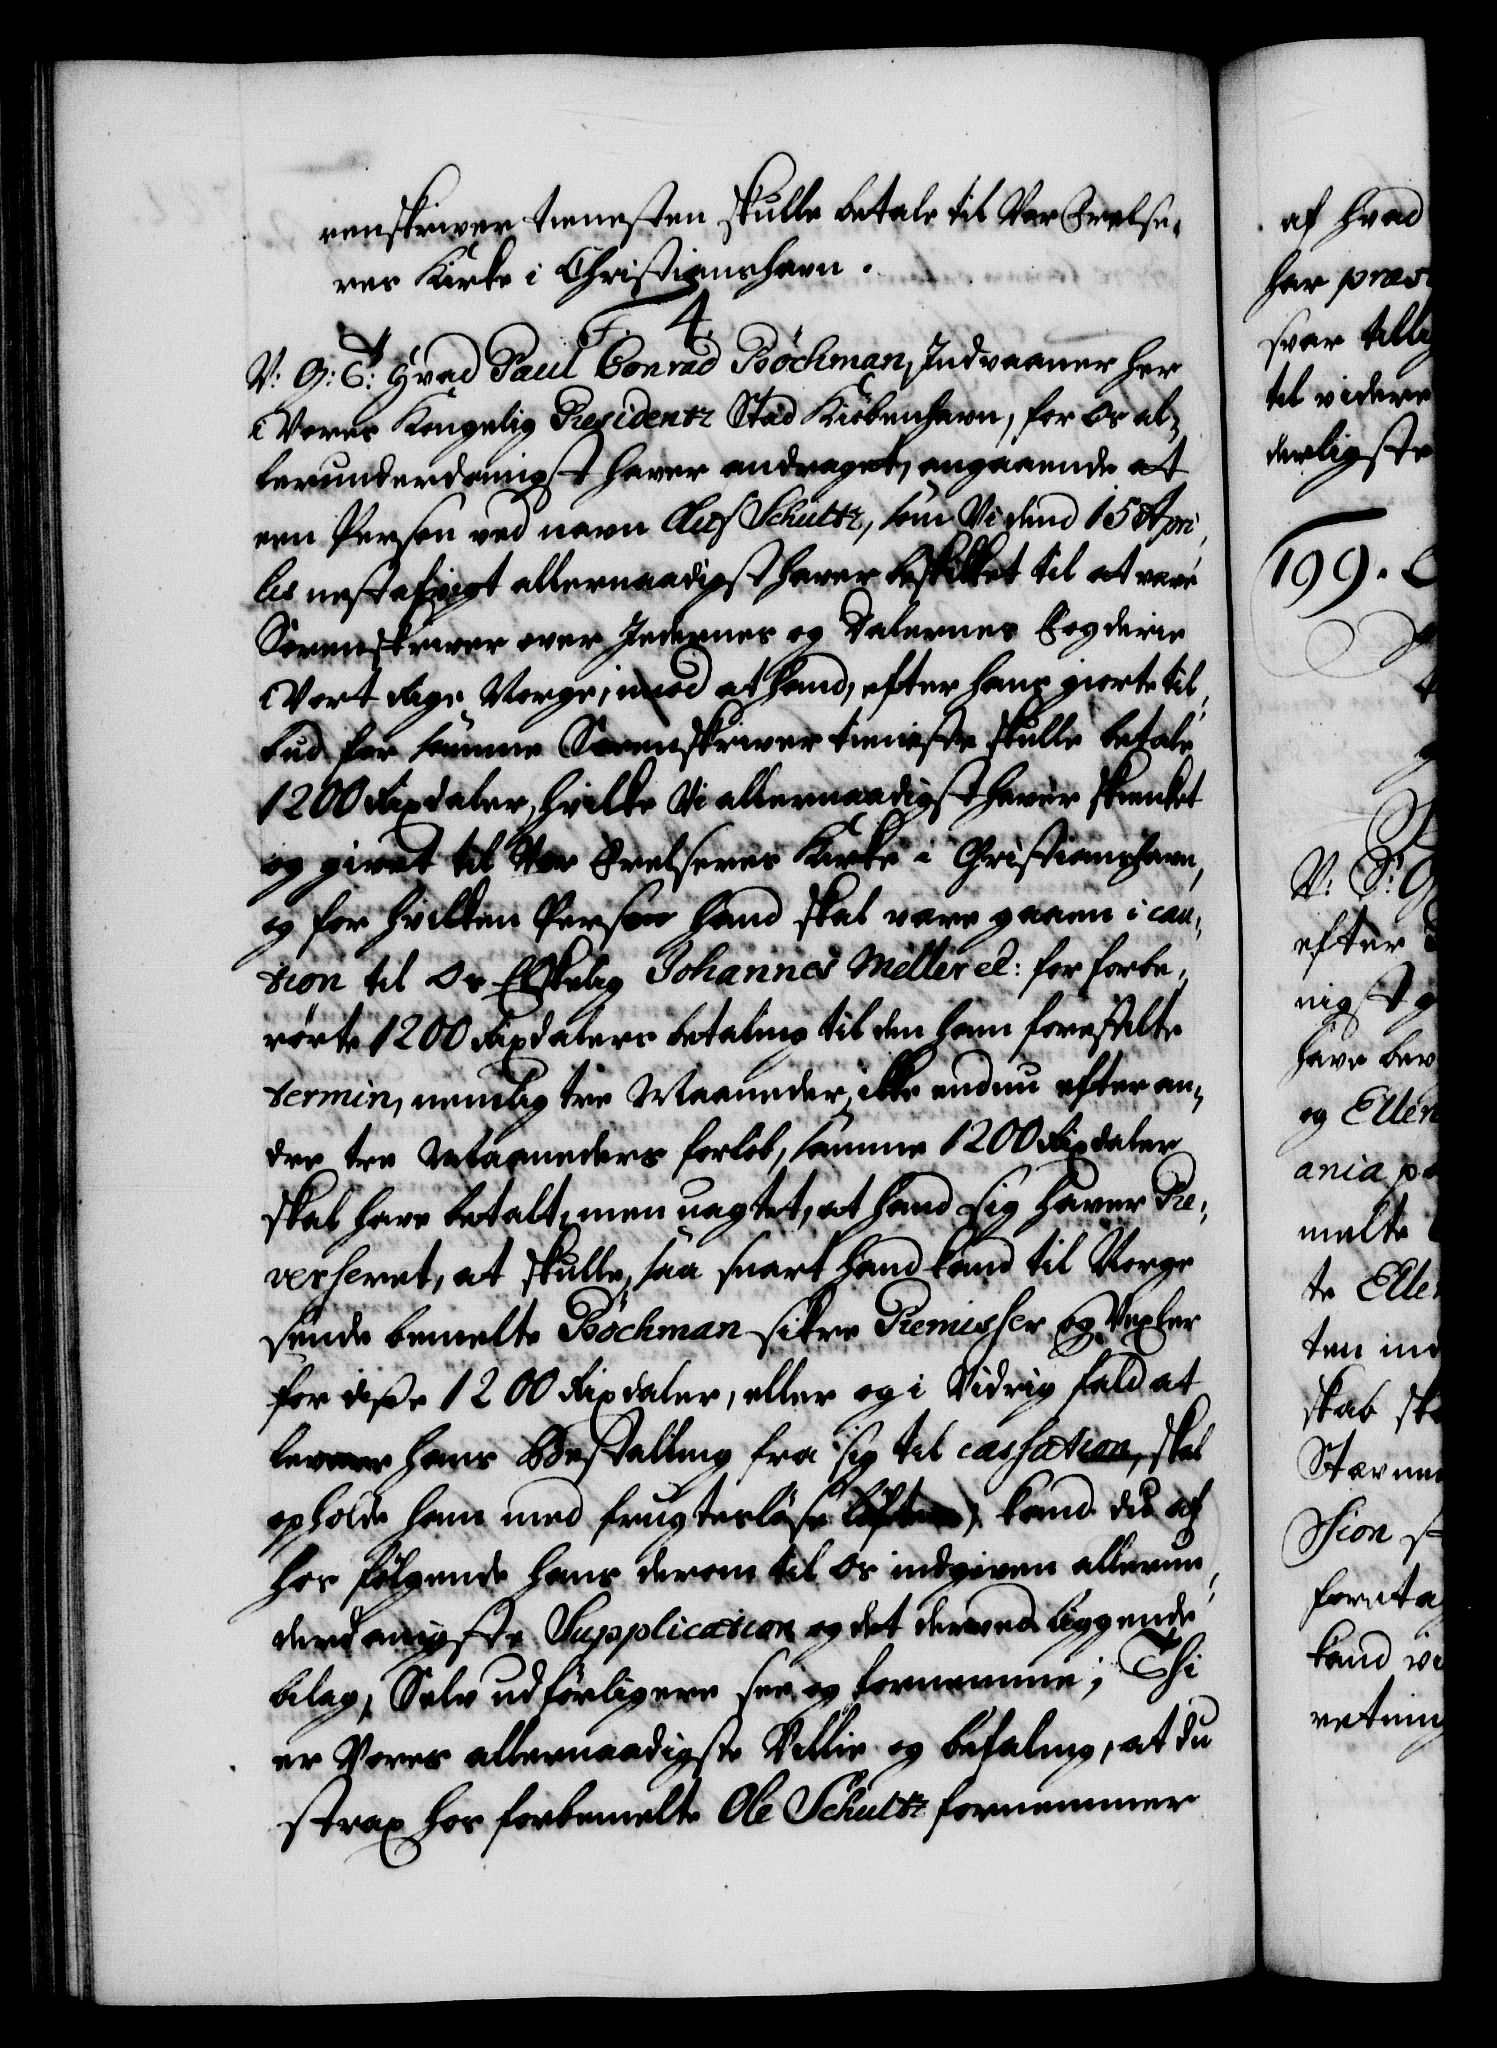 renskriver tienesten skulle betale til Vor Frelse-
res Kirke i Christianshavn.
F. 4.
V: G: T: Hvad Paul Conrad Böchman, Indvaaner her
i Vores Kongelig Residentz Stad Kiöbenhavn, for Os al-
lerunderdanigst haver andraget, angaaende at
een Person ved navn Oluf Schultz, som Vi dend 15 Apri-
lis nestafvigt allernaadigst haver beskikket til at være
Sorenskriver over Jedernes og Dalernes Fogderie
i Vort Rige Norge, imod at hand, efter hans giorte til-
bud for samme Sorenskriver tieniste skulle betale
1200 Rixdaler, hvilke Vi allernaadigst haver skienket
og givet til Vor Frelseres Kirke i Christianshavn,
og for hvilken Person hand skal være gaaen i cau-
tion til Os Elskelig Johannes Meller el: for forbe-
rörte 1200 Rixdalers betaling til den ham forestilte
termin, nemlig tre Maaneder, ikke endnu efter an-
dre tre Maaneders forlöb, samme 1200 Rixdaler
skal have betalt, men uagtet, at hand sig haver Re-
verseret, at skulle, saa snart hand kand til Norge
sende bemelte Böchman sikre Remisser og Vexler
for disse 1200 Rixdaler, eller og i Vidrig fald at
levere hans Bestalling fra sig til cassation, skal
opholde ham med frugteslöse löfter; kand du af
hos fölgende hans derom til Os indgiven allerun-
derdanigste Supplication og det derved liggende
bilag, Selv udförligere see og fornemme; Thi
er Vores allernaadigste Villie og befaling, at du
strax hos forbemelte Ole Schultz fornemmer
af hvad
har præst
svar tillig
til videre
derligste
199.
V: S: G
efter
nigst
have bev
og Ellen
ania
melte
te Ellen
ten ind
skab
Stævne
sion
foreta
kand
retning